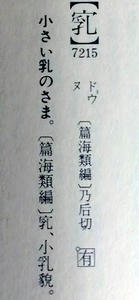 7215
ドウ
ヌ
〔篇海類編〕乃后切 有
小さい乳のさま。〔篇海類編〕、小乳貌。